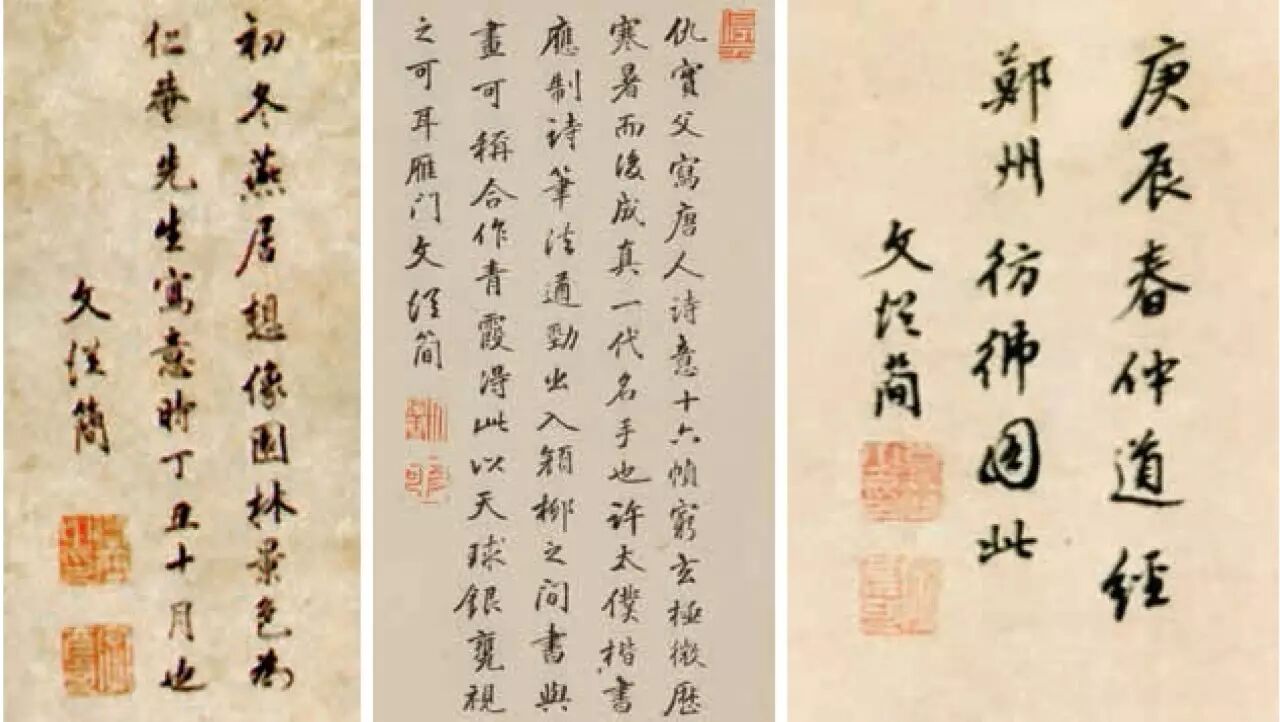 初冬燕居想像園林景色為
仁菴先生寫意時丁丑十月也
文從簡
仇實父寫唐人詩意十六幀窮玄極微歷
寒暑而後成真一代名手也許太僕楷書
應制詩筆法遒勁出入顏柳之間書與
畫可稱合作青霞得此以天球銀甕視
之可耳雁门文從簡
庚辰春仲道經
鄭州彷彿圖此
文從簡